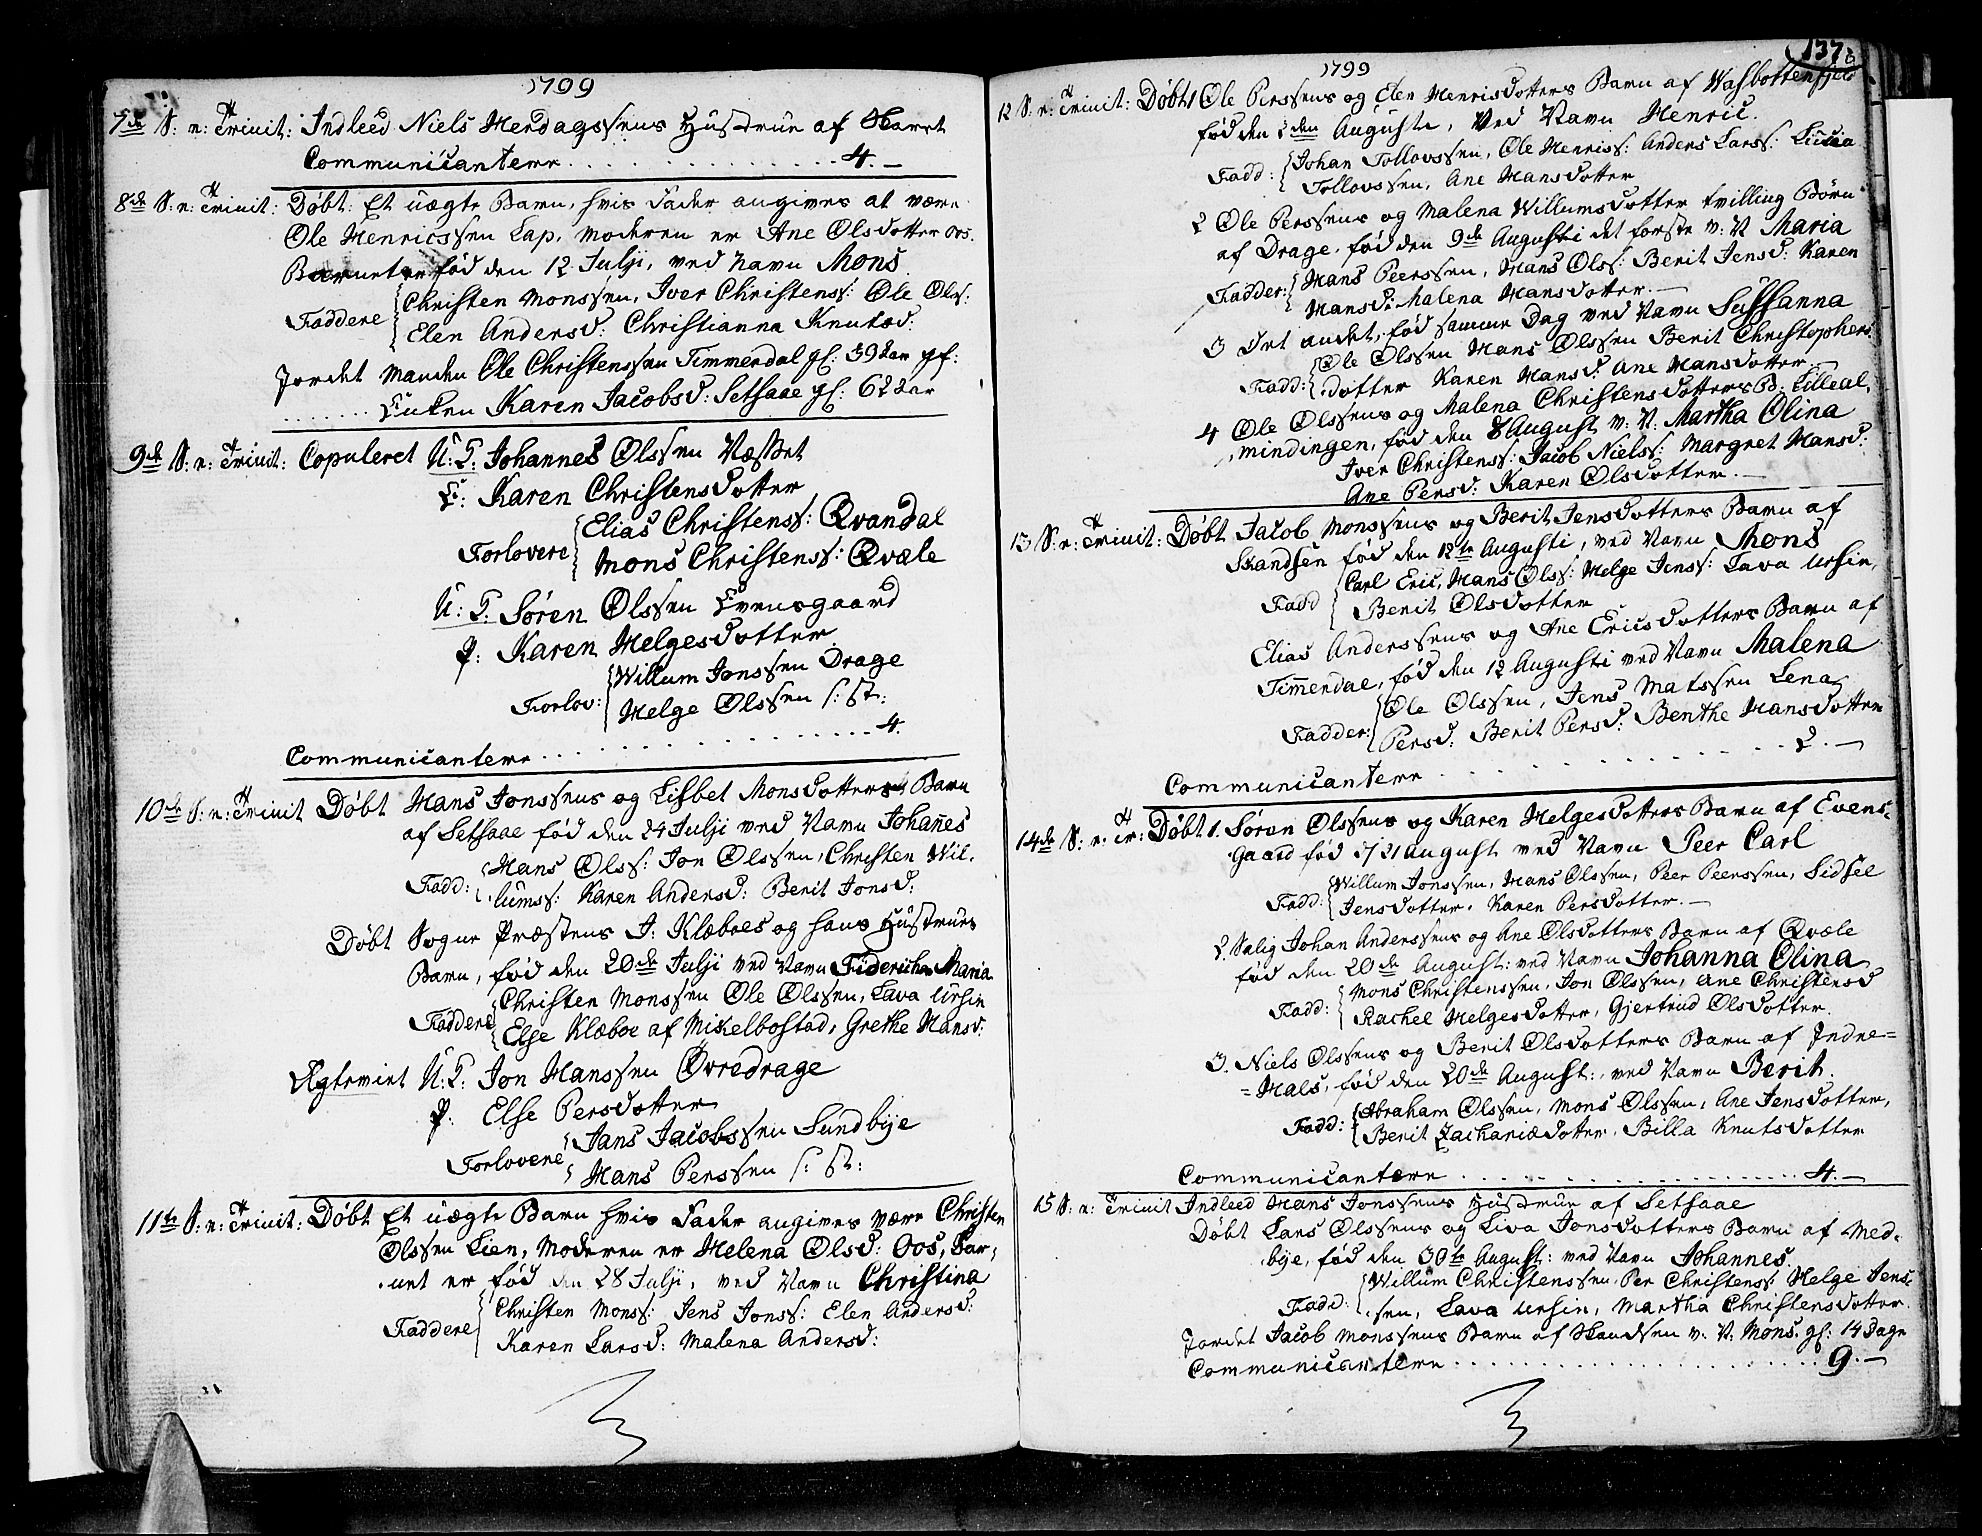 1799
7de S: e: Trinit: Indleed Niels Hendagssens Hustrue af Skaret
Communicantere . . . . . . . . 4.—
8de S: e: Trinit: Døbt: Et uægte Barn, hvis Fader angives at være
Ole Henricssen Lap, Moderen er Ane Olsdotter Oos.
Barnet er fød den 12 Julji, ved Navn Mons
Faddere Christen Monssen, Iver Christens: Ole Ols:
Elen Andersd: Christianna Knutsd:
Jordet Manden Ole Christenssen Timmerdal gl: 39 Aar
Enken Karen Jacobsd: Setsaae gl: 62 Aar
9de S: e: Trinit: Copuleret U: K: Johannes Olssen Næsset
E: Karen Christensdotter
Forlovere Elias Christens: Qvandal
Mons Christens: Qvæle
U: K: Søren Olssen Evensgaard
P: Karen Helgesdotter
Forlov: Willum Jonssen Drage
Helge Olssen S: St:
Communicantere . . . . . . . . 4.
10de S: e: Trinit Døbt Hans Jonssens og Lisbet Monsdotters Barn
af Setsaae fød den 24 Julji ved Navn Johañes
Fadd: Hans Ols: Jon Olssen, Christen Wil-
lums: Karen Andersd: Berit Jonsd:
Døbt Sogne Præstens J: Klæboes og hans Hustrues
Barn, fød den 20de Julji ved Navn Fidericha Maria
Faddere Christen Monssen Ole Olssen, Lava Ursin
Else Klæboe af Mikelbostad, Grethe Hansd:
Ægteviet U: K: Jon Hanssen Øvredrage
P: Else Persdotter
Forlovere Jans Jacobssen Sundbye
Hans Perssen S: St:
11te S: e: Trinit: Døbt Et uægte Barn hvis Fader angives være Christen
Olssen Lien, Moderen er Helena Olsd: Oos, Bar-
net er fød den 28 Julji, ved Navn Christina
Faddere Christen Mons: Jens Jons: Elen Andersd:
Karen Larsd: Malena Andersd:
137
1799
12 S: e: Trinit: Døbt 1 Ole Perssens og Elen Henricsdotters Barn af Wasbottenfjeld
fød den 2den Augusti, Ved Navn Henric.
Fadd: Johan Tollovssen, Ole Henrics: Anders Lars: Lucia
Tollovssen, Ane Hansdotter
2 Ole Perssens og Malena Willumsdotter tvilling Børn
af Drage, fød den 9de Augusti det første v: N Maria
Fadder: Hans Peerssen, Hans Ols: Berit Jensd: Karen
Hansd: Malena Hansdotter.—
3 Det andet, fød samme Dag ved Navn Sussanna
Fadd: Ole Olssen Hans Olssen Berit Christophers
dotter Karen Hansd Ane Hansdotter—
4 Ole Olssens og Malena Christensdotters B: Lilleal-
mindingen, fød den 8 August v: N: Martha Olina
Iver Christens: Jacob Niels: Margret Hansd:
Ane Persd: Karen Olsdotter.—
13 S: e: Trinit: Døbt Jacob Monssens og Berit Jensdotters Barn af
Skandsen fød den 12te Augusti, ved Navn Mons
Fadd Carl Eric, Hans Ols: Helge Jens: Lava Ursin,
Berit Olsdotter
Elias Anderssens og Ane Ericsdotters Barn af
Tim̃erdal, fød den 12 Augusti ved Navn Malena
Fadder: Ole Olssen, Jens Matssen Lena
Persd: Berit Persd: Benthe Hansdotter
Communicantere . . . . . . . . 2.—
14de S: e: Tr: Døbt 1. Søren Olssens og Karen Helgesdotters Barn af Evens-
gaard fød d 21 August ved Navn Peer Carl
Fadd: Willum Jonssen, Hans Olssen, Peer Peerssen, Sidsel
Jensdotter, Karen Persdotter.—
2. Salig Johan Anderssens og Ane Olsdotters Barn af Qvæle
fød den 20de August: ved Navn Johanna Olina
Fadd: Mons Christenssen, Jon Olssen, Ane Christensd
Rachel Helgesdotter, Gjertrud Olsdotter.
3. Niels Olssens og Berit Olsdotters Barn af Indre=
=Hals, fød den 20de August:, ved Navn Berit.
Fadd: Abraham Olssen, Mons Olssen, Ane Jensdotter,
Berit Zachariædotter, Billa Knutsdotter
Communicantere . . . . . . . . 4.—
15 S: e: Trinit Indleed Hans Jonssens Hustrue af Setsaae
Døbt Lars Olssens og Liva Jonsdotters Barn af Med-
bye, fød den 30te August: ved Navn Johannes.
Fadd: Willum Christenssen, Per Christens: Helge Jens-
sen, Lava Ursin, Martha Christensdotter.
Jordet Jacob Monssens Barn af Skandsen v: N: Mons. gl: 14 Dage
Communicantere . . . . . . . . 9.—